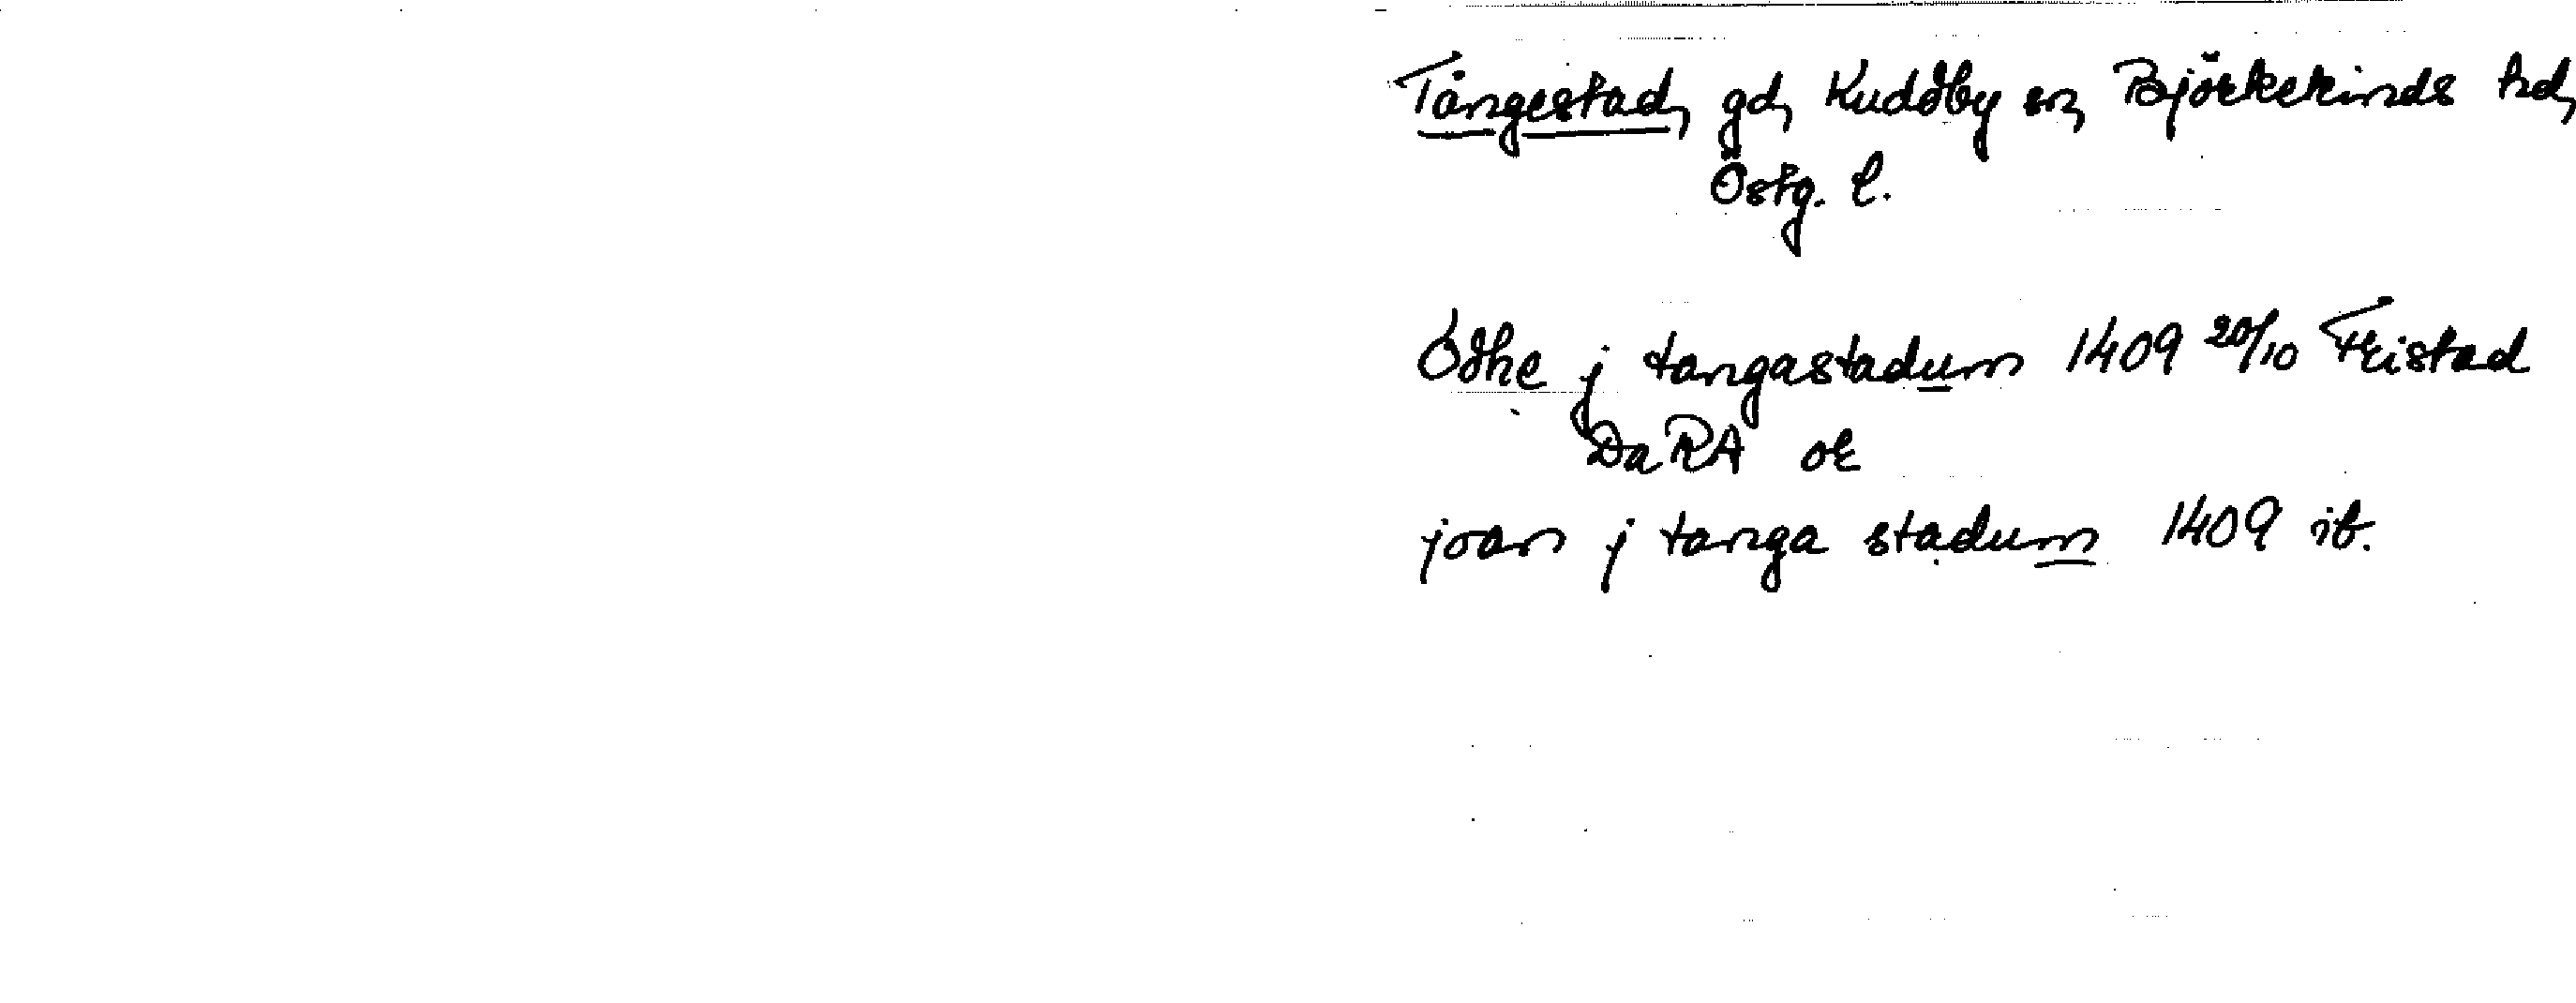 Tångestad, gd, Kuddby sn, Björkekinds hd,
Östg. l.
Odhe j tangastadum 1409 20/10 Fristad
DaRA or
joan j tanga stadum 1409 ib.